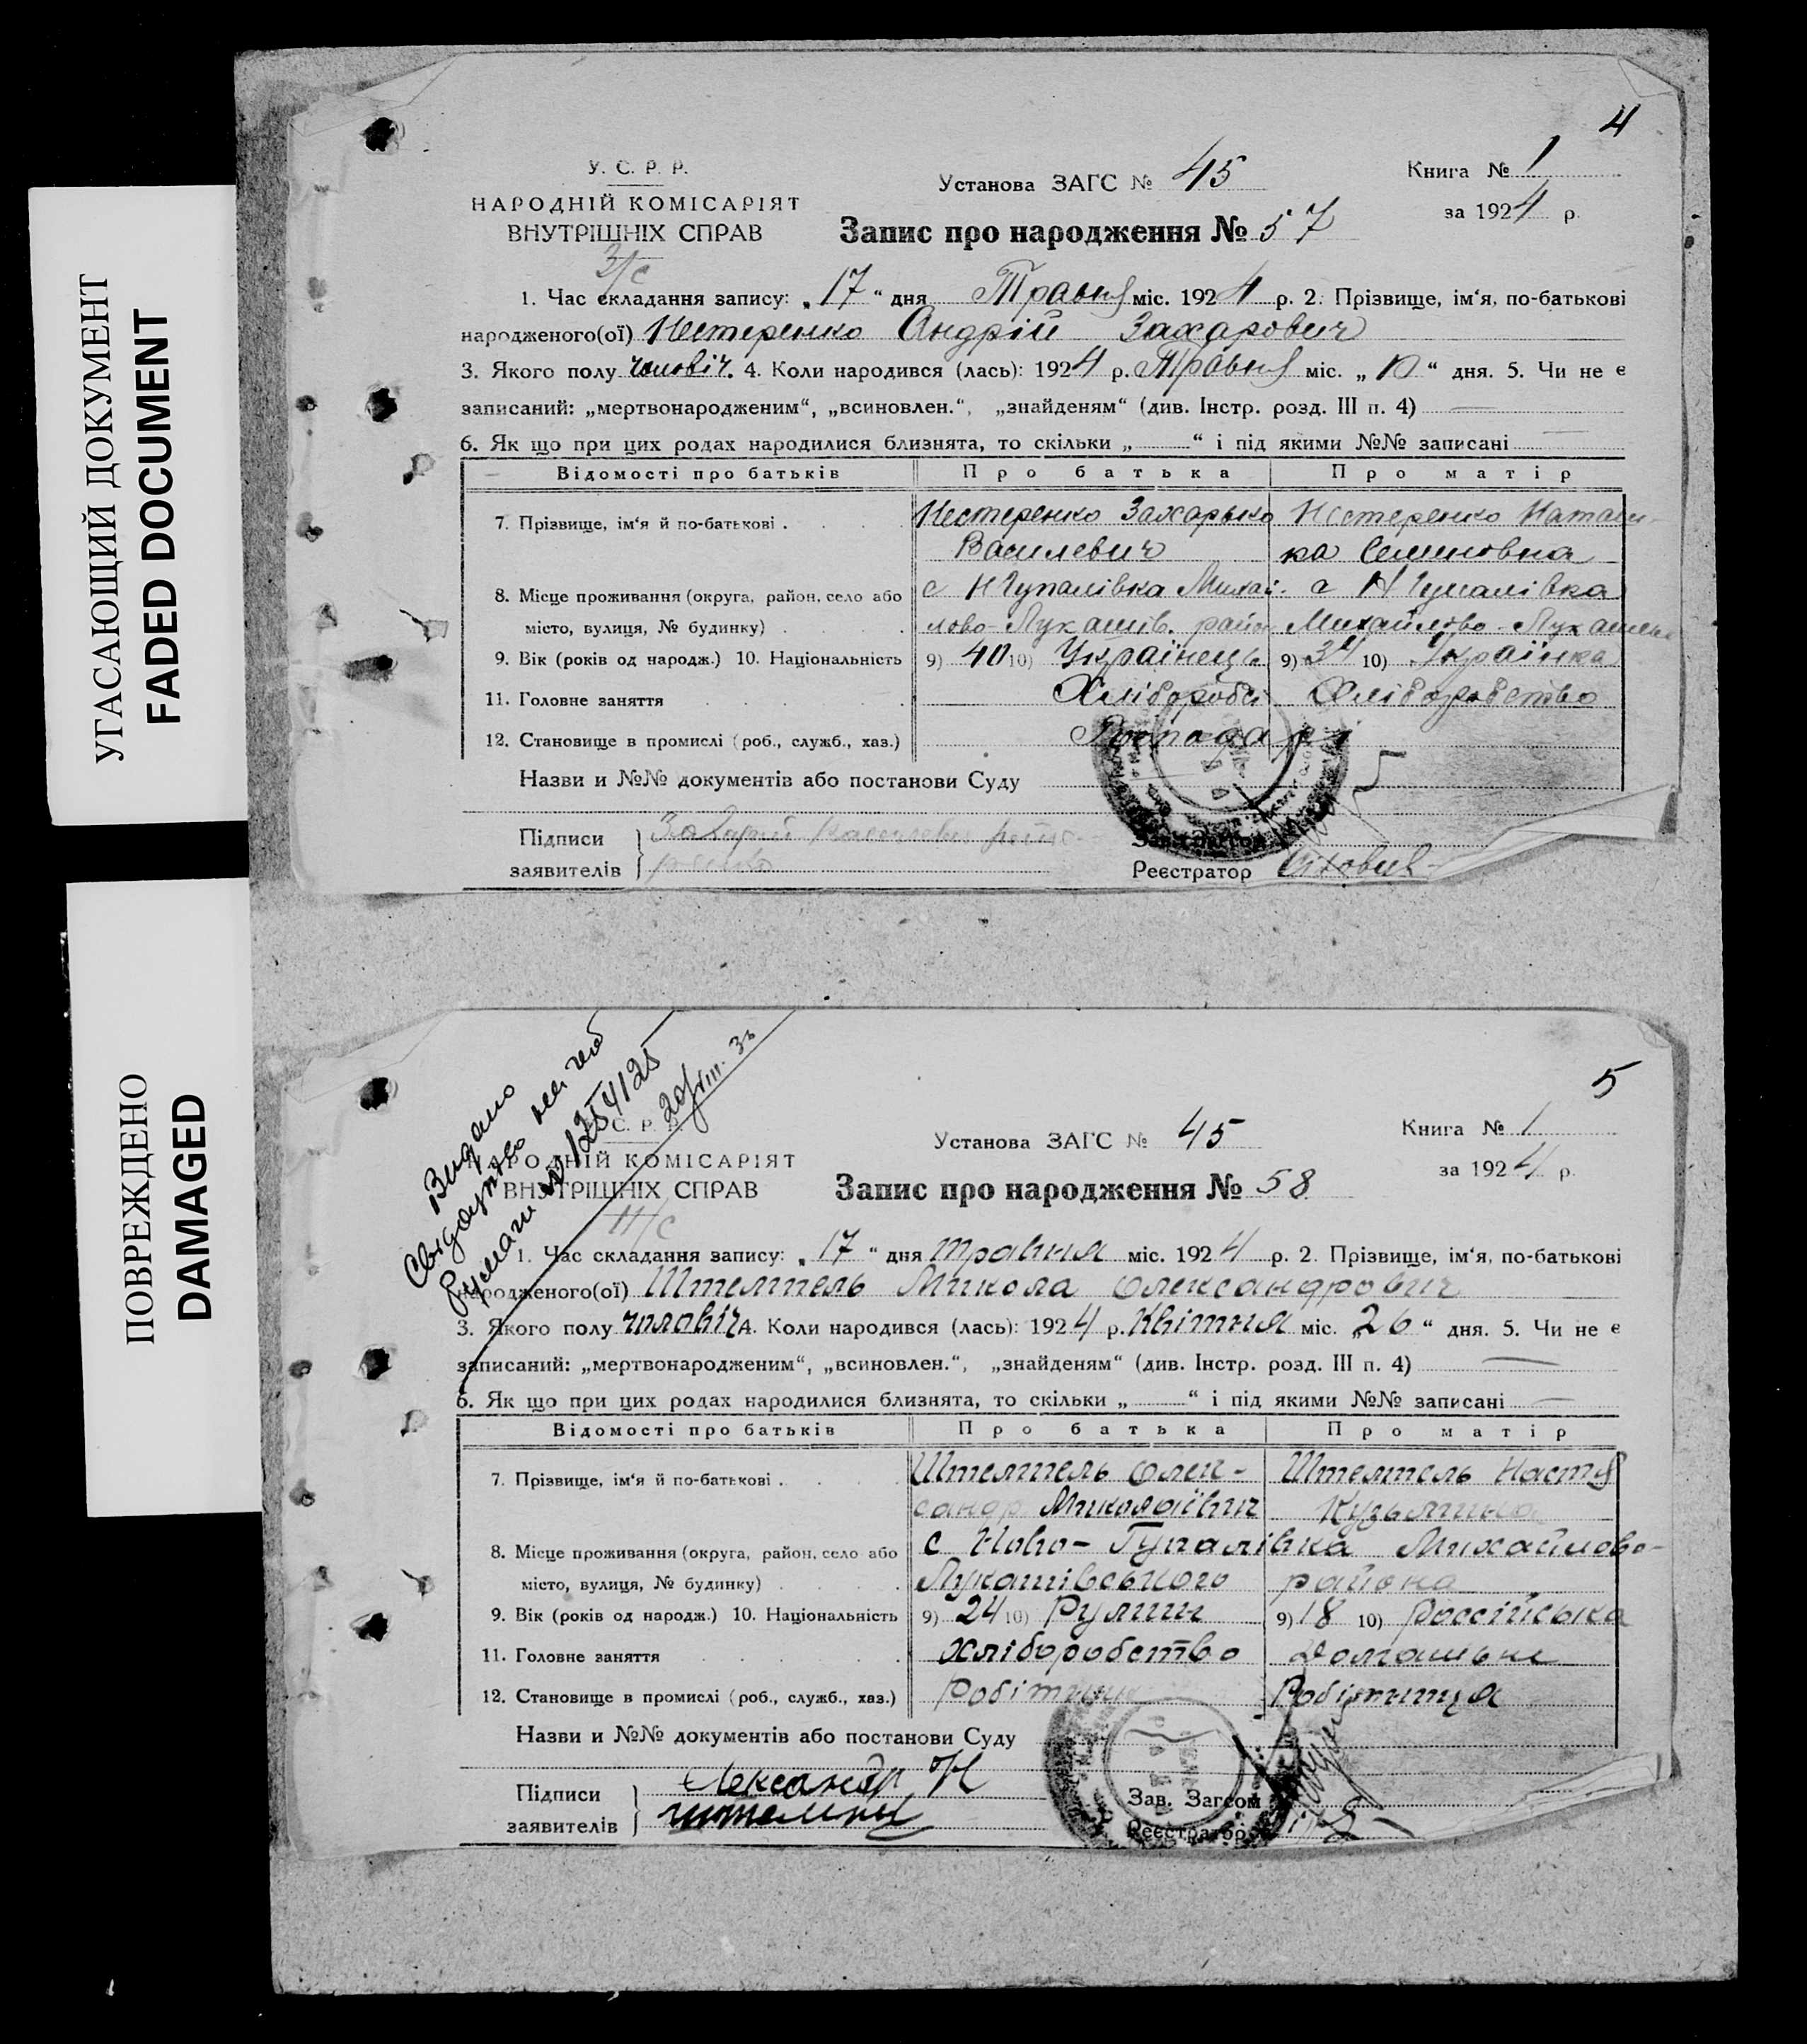 УГАСАЮЩИЙ ДОКУМЕНТ
FADED DOCUMENT
ПОВРЕЖДЕНО
DAMAGED
4
У. С. Р. Р.
НАРОДНІЙ КОМІСАРІЯТ
ВНУТРІШНІХ СПРАВ
3/с
Установа ЗАГС № 45
Книга № 1
за 1924 р.
Запис про народження № 57
1. Час складання запису: „17“ дня Травня міс. 1924 р. 2. Прізвище, ім‘я, по-батькові
народженого(ої) Нестеренко Андрій Захарович
3. Якого полу чоловіч. 4. Коли народився (лась): 1924 р. Травня міс. „10“ дня. 5. Чи не є
записаний: „мертвонародженим“, „всиновлен.“, „знайденям“ (див. Інстр. розд. III п. 4)
6. Як що при цих родах народилися близнята, то скільки „ “ і під якими №№ записані
Відомості про батьків Про батька Про матір
7. Прізвище, ім‘я й по-батькові . Нестеренко Захарько Нестеренко
Василевич ка Семеновна
8. Місце проживання (округа, район, село або с Н Гупалівка Михай- с Н Гупалівка
місто, вулиця, № будинку) лово-Лукашів. район Михайлово-
9. Вік (років од народж.) 10. Національність 9) 40 10) Українець 9) 34 10) Українка
11. Головне заняття Хлібороб Хліборобство
12. Становище в промислі (роб., служб., хаз.) Господарі
Назви и №№ документів або постанови Суду
Підписи
заявителів
Зав. Загсом
Реєстратор
5
Видано
Свідоцтво на
№ 1254125
20/VIII.
У. С. Р. Р.
НАРОДНІЙ КОМІСАРІЯТ
ВНУТРІШНІХ СПРАВ
11/с
Установа ЗАГС № 45
Книга № 1
за 1924 р.
Запис про народження № 58
1. Час складання запису: „17“ дня травня міс. 1924 р. 2. Прізвище, ім‘я, по-батькові
народженого(ої) Штемпель Микола Олександрович
3. Якого полу чоловіч 4. Коли народився (лась): 1924 р. Квітня міс. „26“ дня. 5. Чи не є
записаний: „мертвонародженим“, „всиновлен.“, „знайденям“ (див. Інстр. розд. III п. 4)
6. Як що при цих родах народилися близнята, то скільки „ “ і під якими №№ записані
Відомості про батьків Про батька Про матір
7. Прізвище, ім‘я й по-батькові . Штемпель Олек- Штемпель Настя
сандр Миколаївич Кузьмина
8. Місце проживання (округа, район, село або с Ново-Гупалівка Михайлово-
місто, вулиця, № будинку) Лукашівського района
9. Вік (років од народж.) 10. Національність 9) 24 10) Румин 9) 18 10) Россійська
11. Головне заняття хліборобство
12. Становище в промислі (роб., служб., хаз.) Робітник Робітниця
Назви и №№ документів або постанови Суду
Підписи
заявителів
Зав. Загсом
Реєстратор